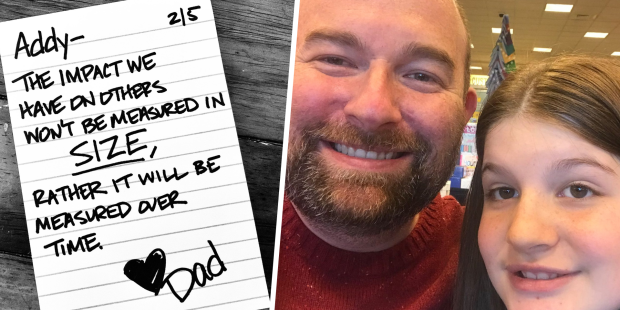 Addy- 2/5
THE IMPACT WE
HAVE ON OTHERS
WON'T BE MEASURED IN
SIZE,
RATHER IT WILL BE
MEASURED OVER
TIME.
Dad